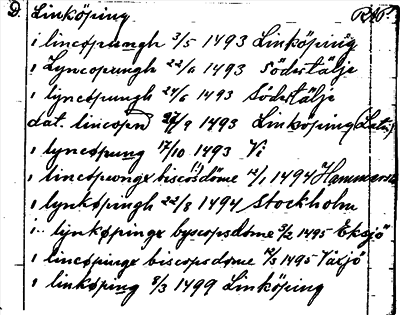 D Linköping. RAP.
i lincøpungh 3/5 1493 Linköping
i Lyncopungh 22/6 1493 Södertälje
i lyncøpungh 24/6 1493 Södertälje
dat. lincopen 27/9 1493 Linköping (Latin)
i lyncøpung 17/10 1493 Vi
i lincøpungx biscopsdøme 12/1 1494 Hammarsta
i lynkøpingh 22/8 1494 Stockholm
i.. lynkøpingx byscopsdøme 3/2 1495 Eksjö
i lincøpingx biscopsdøme 12/3 1495 Växjö
i linkøping 8/3 1499 Linköping